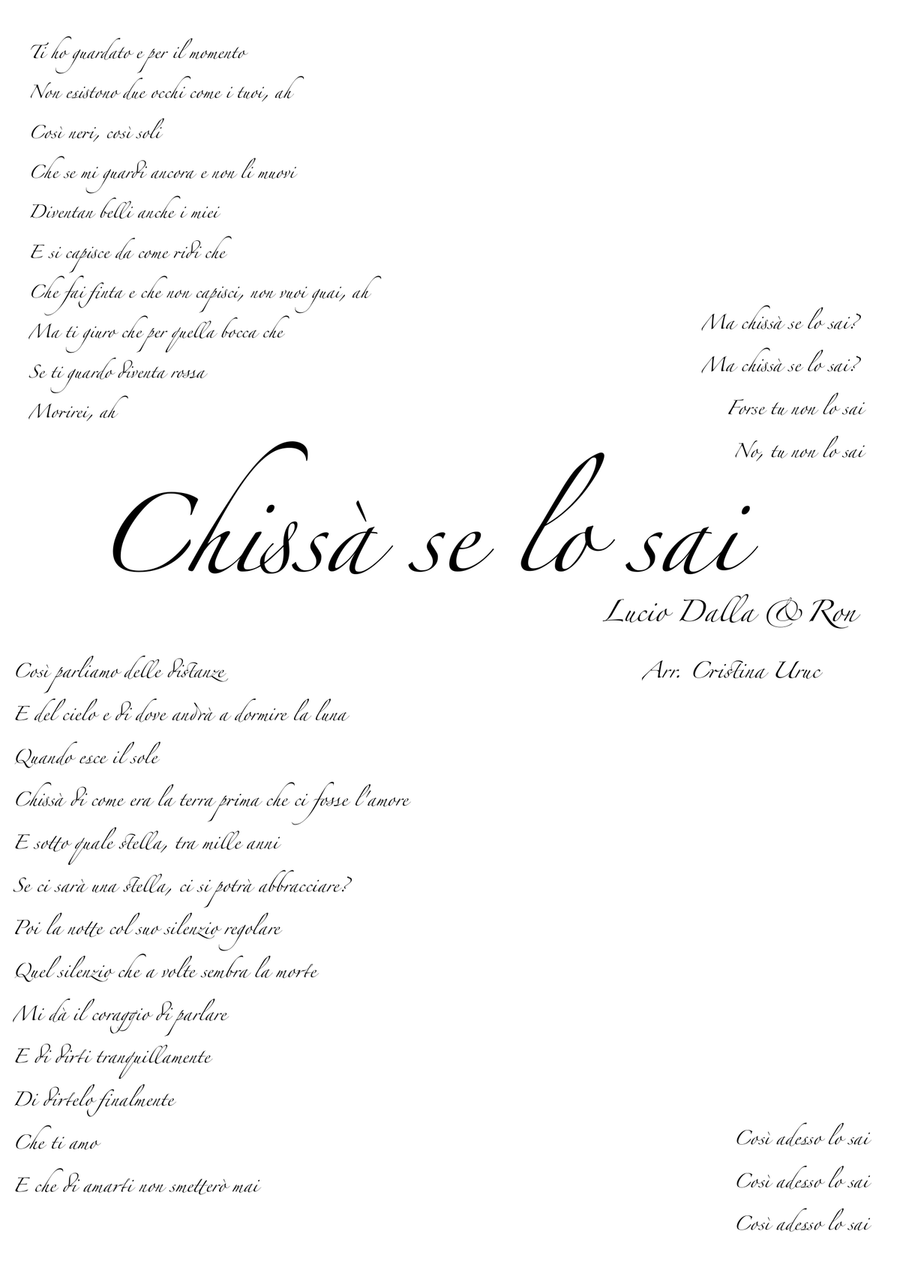 Ti ho guardato e per il momento
Non esistono due occhi come i tuoi, ah
Così neri, così soli
Che se mi guardi ancora e non li muovi
Diventan belli anche i miei
E si capisce da come ridi che
Che fai finta e che non capisci, non vuoi guai, ah
Ma ti giuro che per quella bocca che
Se ti guardo diventa rossa
Morirei, ah
Ma chissà se lo sai?
Ma chissà se lo sai?
Forse tu non lo sai
No, tu non lo sai
Chissà se lo sai
Lucio Dalla & Ron
Arr. Cristina Uruc
Così parliamo delle distanze
E del cielo e di dove andrà a dormire la luna
Quando esce il sole
Chissà di come era la terra prima che ci fosse l'amore
E sotto quale stella, tra mille anni
Se ci sarà una stella, ci si potrà abbracciare?
Poi la notte col suo silenzio regolare
Quel silenzio che a volte sembra la morte
Mi dà il coraggio di parlare
E di dirti tranquillamente
Di dirtelo finalmente
Che ti amo
E che di amarti non smetterò mai
Così adesso lo sai
Così adesso lo sai
Così adesso lo sai